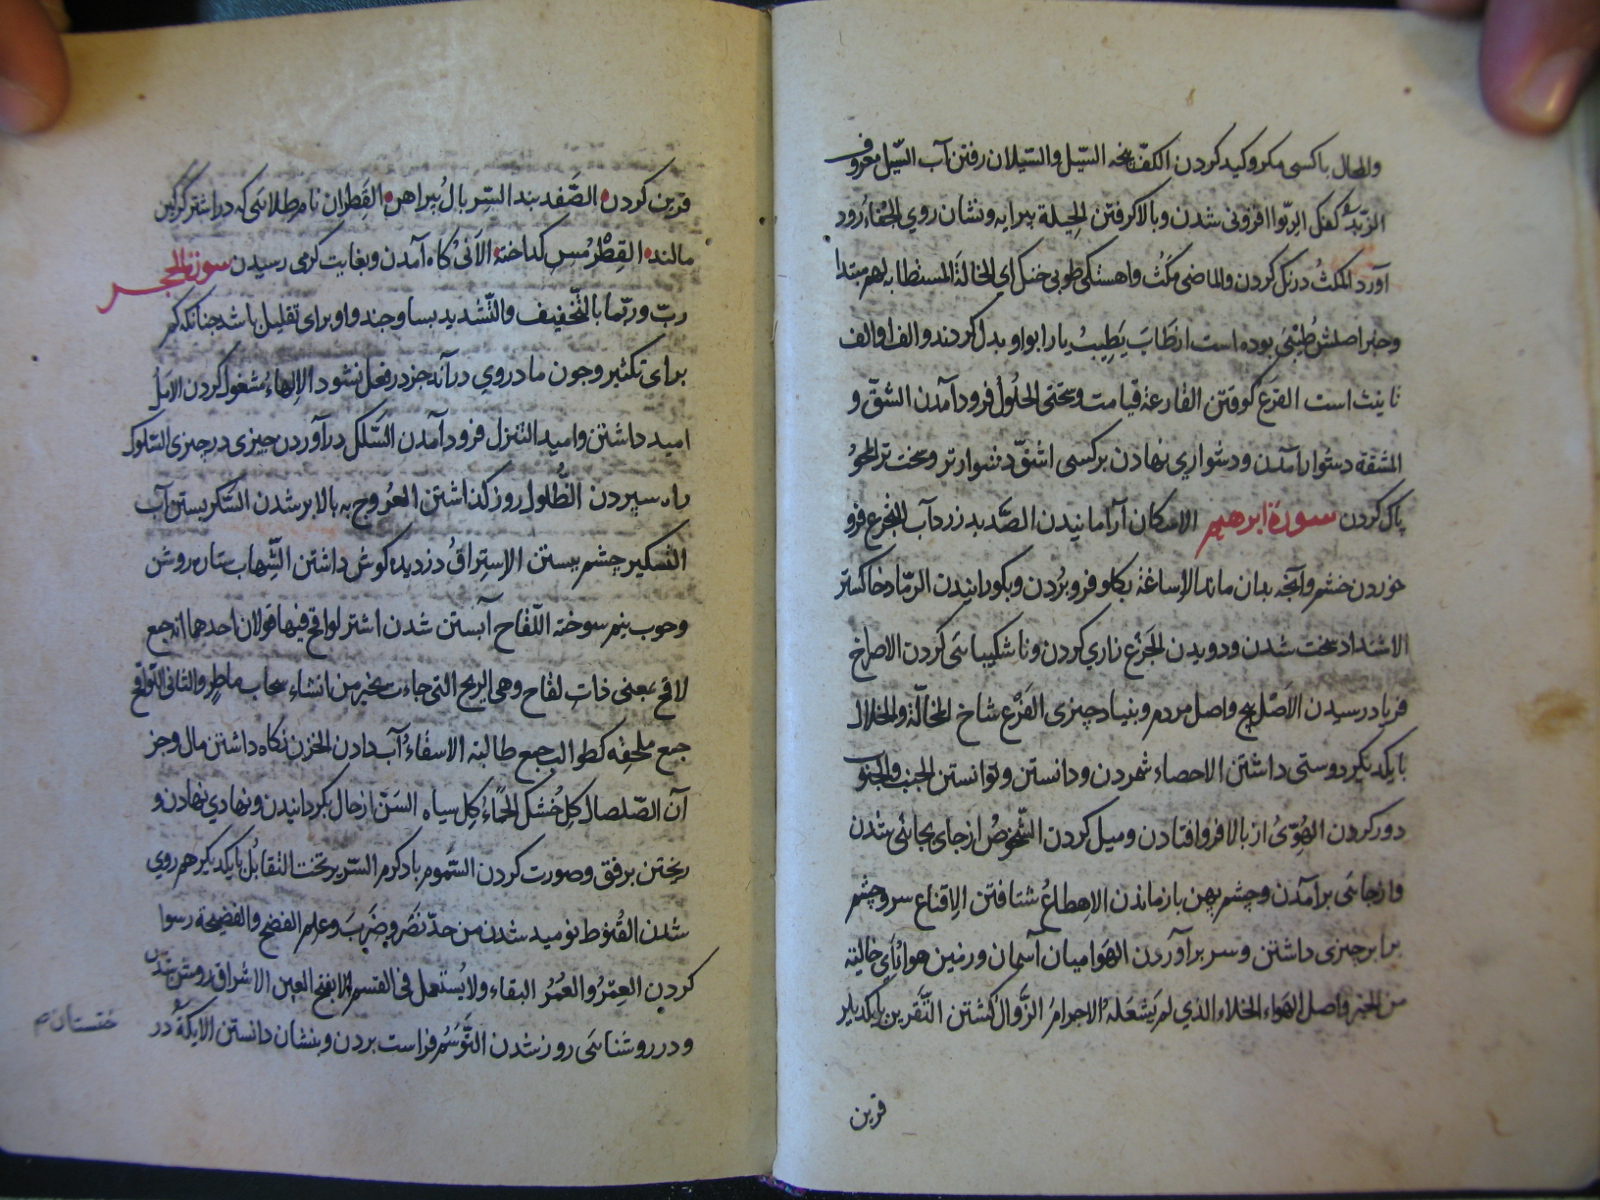 والمحال باکسی مکر وکید کردن الکفّ پنجه السّیل والسّیلان رفتن آب السّیل معروف
الزّبد کفک الربوا افزونی شدن وبالا کرفتن الحیلة پیرایه ونشان روی الجفاء رود
آورد المکث درنک کردن والماضی مکث واهستکی طوبی خنک ای الخالة المستطابه لهم مبتدا
وخبر اصلش طیبی بوده است از طاب یطیب یا را بواو بدل کردند والف او الف
تانیث است القرع کوفتن القارعة قیامت وسختی الحلول فرود آمدن الشقّ و
المشقة دشوار آمدن ودشواری نهادن بر کسی اشقّ دشوارتر وسخت تر المحو
پاک کردن سورة ابرهیم الاسکان آرامانیدن الصّدید زرداب التجرع فرو
خوردن خشم وآنچه بدان ماند الإساغة بکلو فرو بردن وبکورانیدن الرّماد خاکستر
الاشتداد سخت شدن ودویدن الجزع زاری کردن وناشکیبائی کردن الاصراخ
فریاد رسیدن الاصل بیخ واصل مردم وبنیاد چیزی الفرع شاخ المخالّة والخلال
با یکدیکر دوستی داشتن الاحصاء شمردن ودانستن وتوانستن الجنب والجنوب
دور کردن الهویّ از بالا فرو افتادن ومیل کردن الشخوص از جای بجائی شدن
واز جائی برآمدن وچشم پهن باز ماندن الاهطاع شتافتن الاقناع سر وچشم
برابر چیزی داشتن وسر برآوردن الهوا میان آسمان وزمین هواء ای خالیة
من الخیر واصل الهواء الخلاء الذی لم یشغله الاجرام الزّوال کشتن التّقرین بایکدیکر
قرین
قرین کردن الصّفد بند السّربال پیراهن القطران نام طلائی که در اشتر کرکین
مالند القطر مس کداخته الآنی کاه آمدن وبغایت کرمی رسیدن سورة الحجر
ربّ وربّما بالتّخفیف والتّشدید بسا وچند واو برای تقلیل باشد چنانکه کم
برای تکثیر وچون ما در وی درآید جز در فعل نشود الإلهاء مشغول کردن الامل
امید داشتن وامید التنزل فرود آمدن السّلک درآوردن چیزی در چیزی السّلوک
راه سپردن الظّلول روز کذاشتن العروج به بالا بر شدن السّکر بستن آب
التسکیر چشم ببستن الاستراق دزدیده کوش داشتن الشّهاب ستاره روشن
وچوب نیم سوخته اللّقاح آبستن شدن اشتر لواقح فیها قولان احدهما انه جمع
لاقح بمعنی ذات لقاح وهی الریح التی جاءت بخیر من انشاء سحاب ماطر والثانی اللّواقح
جمع ملحقه کطوالب جمع طالبة الاسقاء آب دادن الخزن نکاه داشتن مال وجز
آن الصّلصال کل خشک الحماء کل سیاه السّن از حال بکردانیدن ونهادی نهادن و
ریختن برفق وصورت کردن السّموم باد کرم السّریر تخت التقابل بایکدیکر هم روی
شدن القنوط نومید شدن من حدّ نصر وضرب وعلم الفضح والفضیحة رسوا
کردن العمر والعمر البقاء ولا یستعمل فی القسم الا بفتح العین الاشراق روشن شدن
ودر روشنائی روز شدن التّوسّم فراست بردن وبنشان دانستن الایکة در
ختستان م